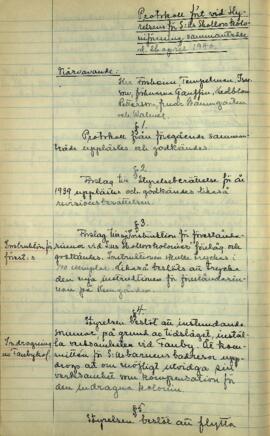 Protokoll fört vid Sty-
relsens för S:ta skollovskolo-
niförening sammanträde
d. 26 april 1940.
Närvarande:
Herr Forsbom Tempelman,
Johanna Hedblom
Petterson, fruar Baumgarten
och Walner.
§ 1.
Protokoll från föregående samman-
träde upplästes och godkändes.
§ 2.
Förslag till Styrelseberättelse för år
1939 upplästes och godkändes liksom
revisionsberättelsen.
§ 3.
Instruktion för
förest:r
Förslag till Instruktion för förestånda-
rinnor vid skollovskolonier förelåg och
godkändes. Instruktionen skulle tryckas i
exemplar. Likaså beslöts att trycka
den nya instruktionen för föreståndarin-
nan på
§ 4.
Indragning
av Tauby kol.
Styrelsen beslöt att instundande
sommar på grund av tidsläget, instäl-
la verksamheten vid Tauby. At kom-
mittén för S:ta barnens badresor upp-
drogs att om möjligt utvidga sin
verksamhet som kompensation för
den indragna kolonin.
§ 5
Styrelsen beslöt att flytta